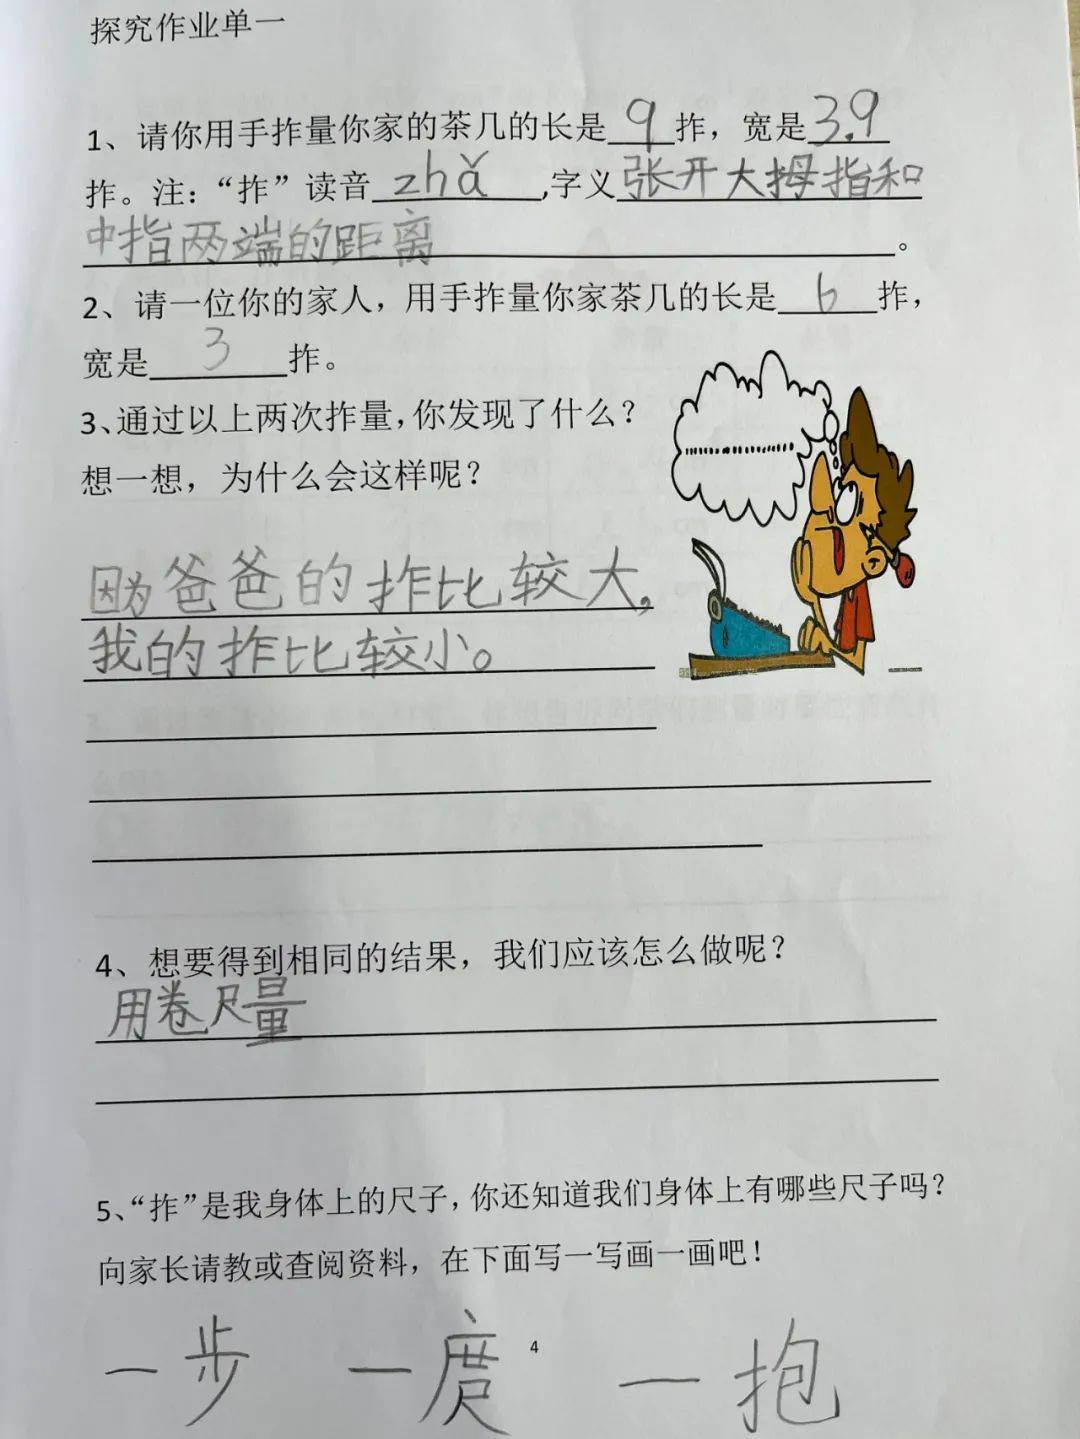 探究作业单一
1、请你用手拃量你家的茶几的长是9拃，宽是3.9
拃。注：“拃”读音zhǎ,字义张开大拇指和
中指两端的距离。
2、请一位你的家人，用手拃量你家茶几的长是6拃，
宽是3拃。
3、通过以上两次拃量，你发现了什么？
想一想，为什么会这样呢？
因为爸爸的拃比较大，
我的拃比较小。
4、想要得到相同的结果，我们应该怎么做呢？
用卷尺量
5、“拃”是我身体上的尺子，你还知道我们身体上有哪些尺子吗？
向家长请教或查阅资料，在下面写一写画一画吧！
一步 一庹 一抱
4